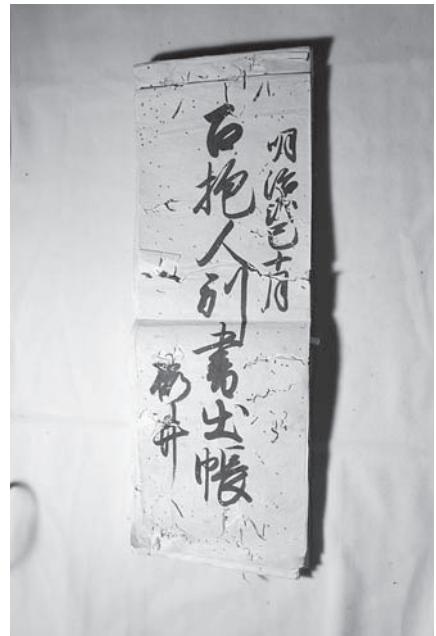 明治弐巳十月
召抱人別書出帳
桜井